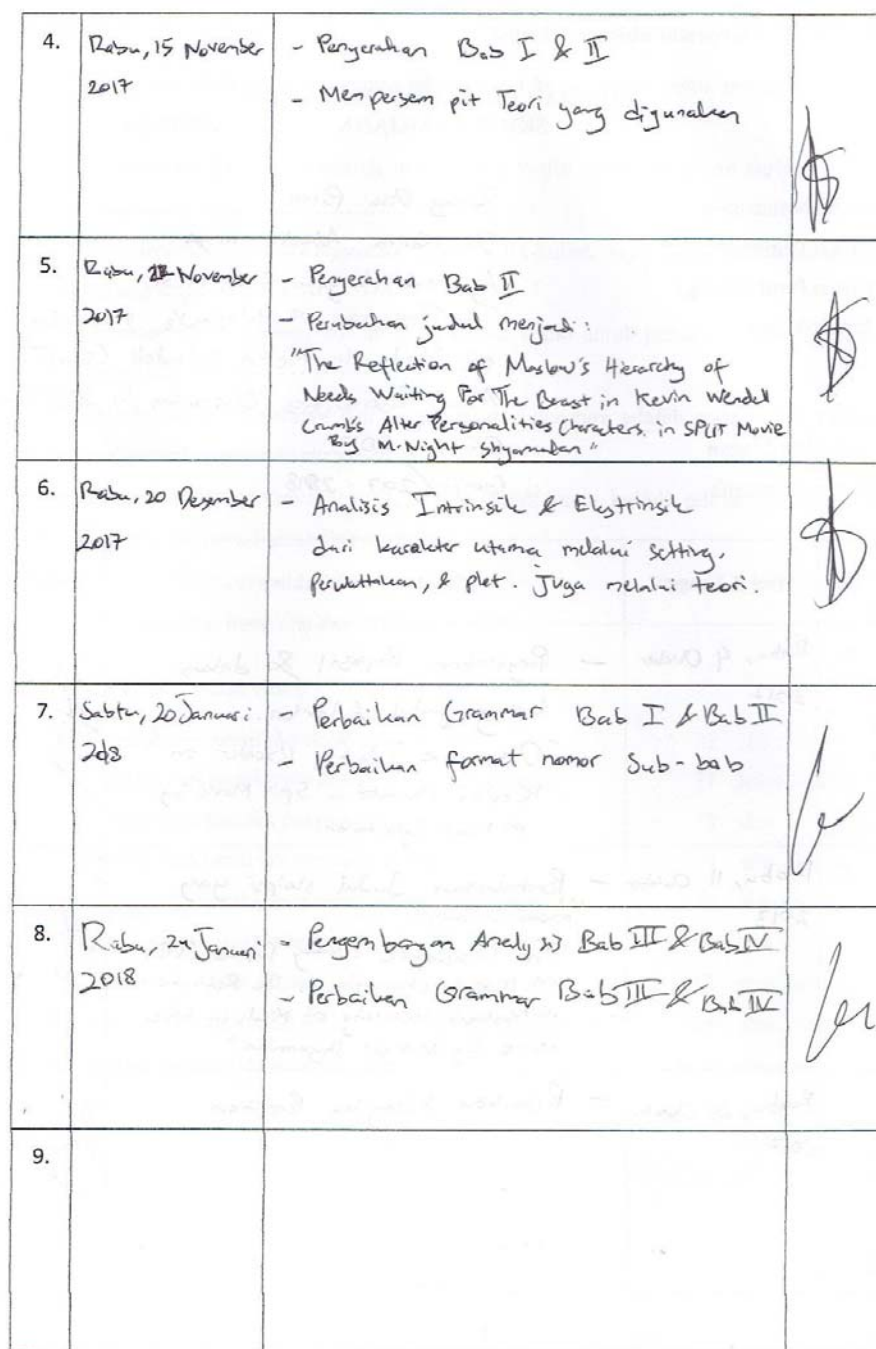 4. Rabu, 15 November - Penyerahan Bab I & II
2017 - Mempersem pit Teori yang digunakan
5. Rabu, November - Penyerahan Bab II
2017 - Perubahan judul menjadi :
"The Reflection of Maslow's Hierarchy of
Needs Waiting For The Beast in Kevin Wendell
Crumb's Alter Personalities Characters in SPLIT Movie
By M. Night Shyamalan"
6. Rabu, 20 Desember - Analisis Intrinsik & Ekstrinsik
2017 dari karakter utama melalui setting,
perwatakan, & plot. Juga melalui teori.
7. Sabtu, 20 Januari - Perbaikan Grammar Bab I & Bab II
2018 - Perbaikan format nomor Sub-bab
8. Rabu, 24 Januari - Pengembangan Analysis Bab III & Bab IV
2018 - Perbaikan Grammar Bab III & Bab IV
9.